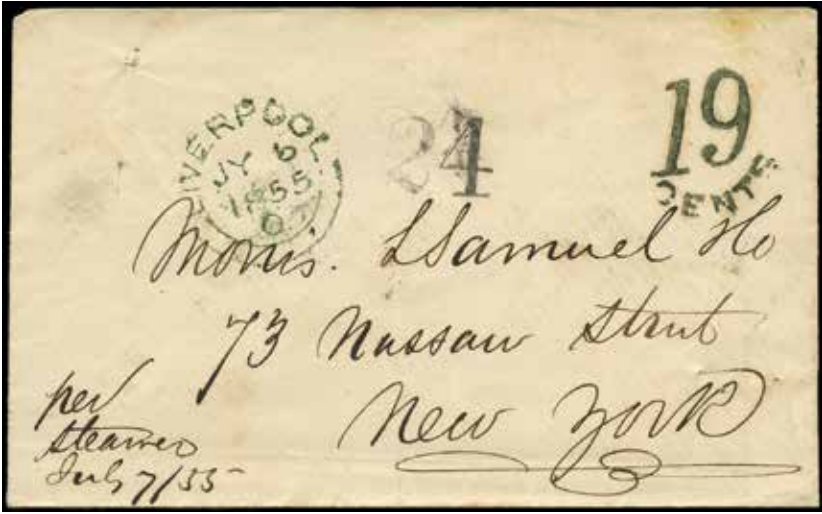 LIVERPOOL
JY 6
1855
24
19
CENTS
Morris. L Samuel
73 Nassau Street
New York
per
steamer
July 7/55